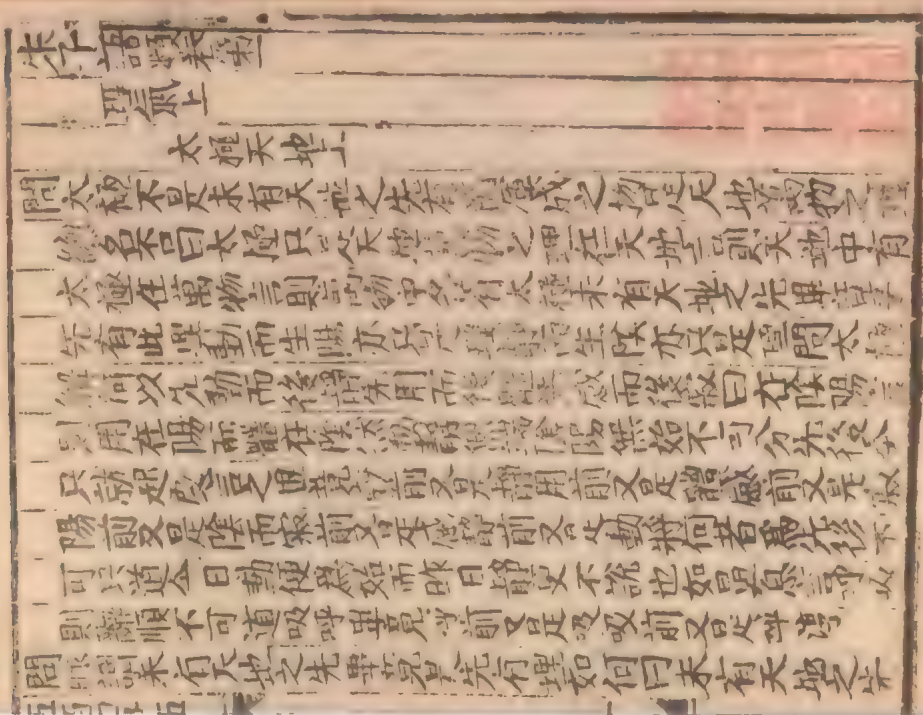 朱子語類卷第一
理氣上
太極天地上
問太極不是未有天地之先有箇渾成之物是天地萬物之理
總名否曰太極只是天地萬物之理在天地言則天地中有
太極在萬物言則萬物中各有太極未有天地之先畢竟是
先有此理動而生陽亦只是理靜而生陰亦只是理問太極
解何以先動而後靜先用而後體先感而後寂曰在陰陽言
則用在陽而體在陰然動靜無端陰陽無始不可分先後今
只就起處言之畢竟動前又是靜用前又是體感前又是寂
陽前又是陰而寂前又是感靜前又是動將何者爲先後不
可只道今日動便爲始而昨日靜更不說也如鼻息言呼吸
則辭順不可道吸呼畢竟呼前又是吸吸前又是呼淳
問昨謂未有天地之先畢竟是先有理如何曰未有天地之先